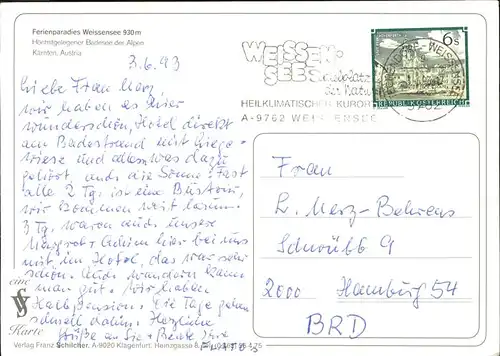 Ferienparadies Weissensee 930 m
Höchstgelegener Badesee der Alpen
Kärnten, Austria
3.6.93
Liebe Frau Merz,
wir haben es hier
wunderschön, Hotel direkt
am Badestrand mit Liege-
wiese und allem was dazu
gehört, und die Sonne! Fast
alle 2 Tg. ist eine
wir kommen weit herum.
3 Tg. waren auch unsere
Margret + hier bei uns
mit im Hotel, das war sehr
schön. Auch wandern kann
man gut. Wir haben
Halbpension. Die Tage gehen
schnell dahin. Herzliche
Grüße an Sie + Ihre
eine
VS
Karte
Verlag Franz Schilcher, A-9020 Klagenfurt, Heinzgasse
WEISSEN-
SEE
der Natur
HEILKLIMATISCHER KURORT
A-9762 WEISSENSEE
6 S
REPUBLIK ÖSTERREICH
Frau
L. Merz-Behrens
Schrübb 9
2000 Hamburg 54
BRD